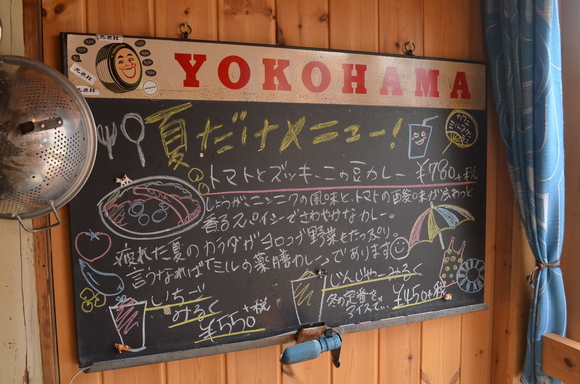 YOKOHAMA
夏だけメニュー!
トマトとズッキーニの豆カレー ¥780+税
しょうがニンニクの風味と、トマトの酸味がふわっと
香るスパイシーでさわやかなカレー。
疲れた夏のカラダがヨロコブ野菜もたっぷり。
言うなれば「ミルの薬膳カレー」であります
いちご
みるく
¥550+税
じんじゃーみるく
冬の定番を
アイスで…
¥450+税